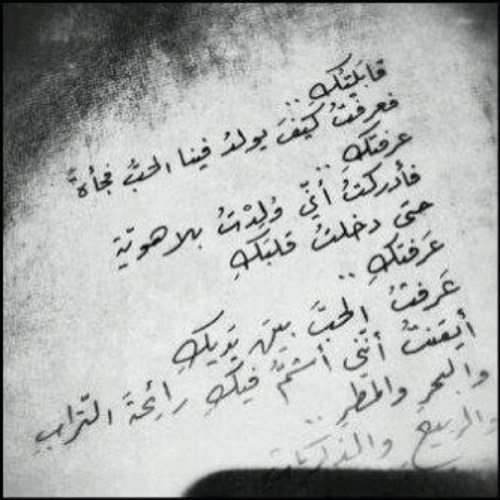 قابَلتُكِ ..
فعرفتُ كيفَ يولدُ فينا الحبّ فجأةً
عرفتكِ ..
فأدركتُ أنّي وُلِدْتُ بلا هويّة
حتى دخلتُ قلبَكِ
عَرفتكِ ..
عَرفتُ الحبَّ بينَ يَديكِ
أيقنتُ أنّني أشتمُّ فيكِ رائِحةَ التّرابِ
والبحرِ والمَطرِ ..
والربيعِ والذكرياتِ